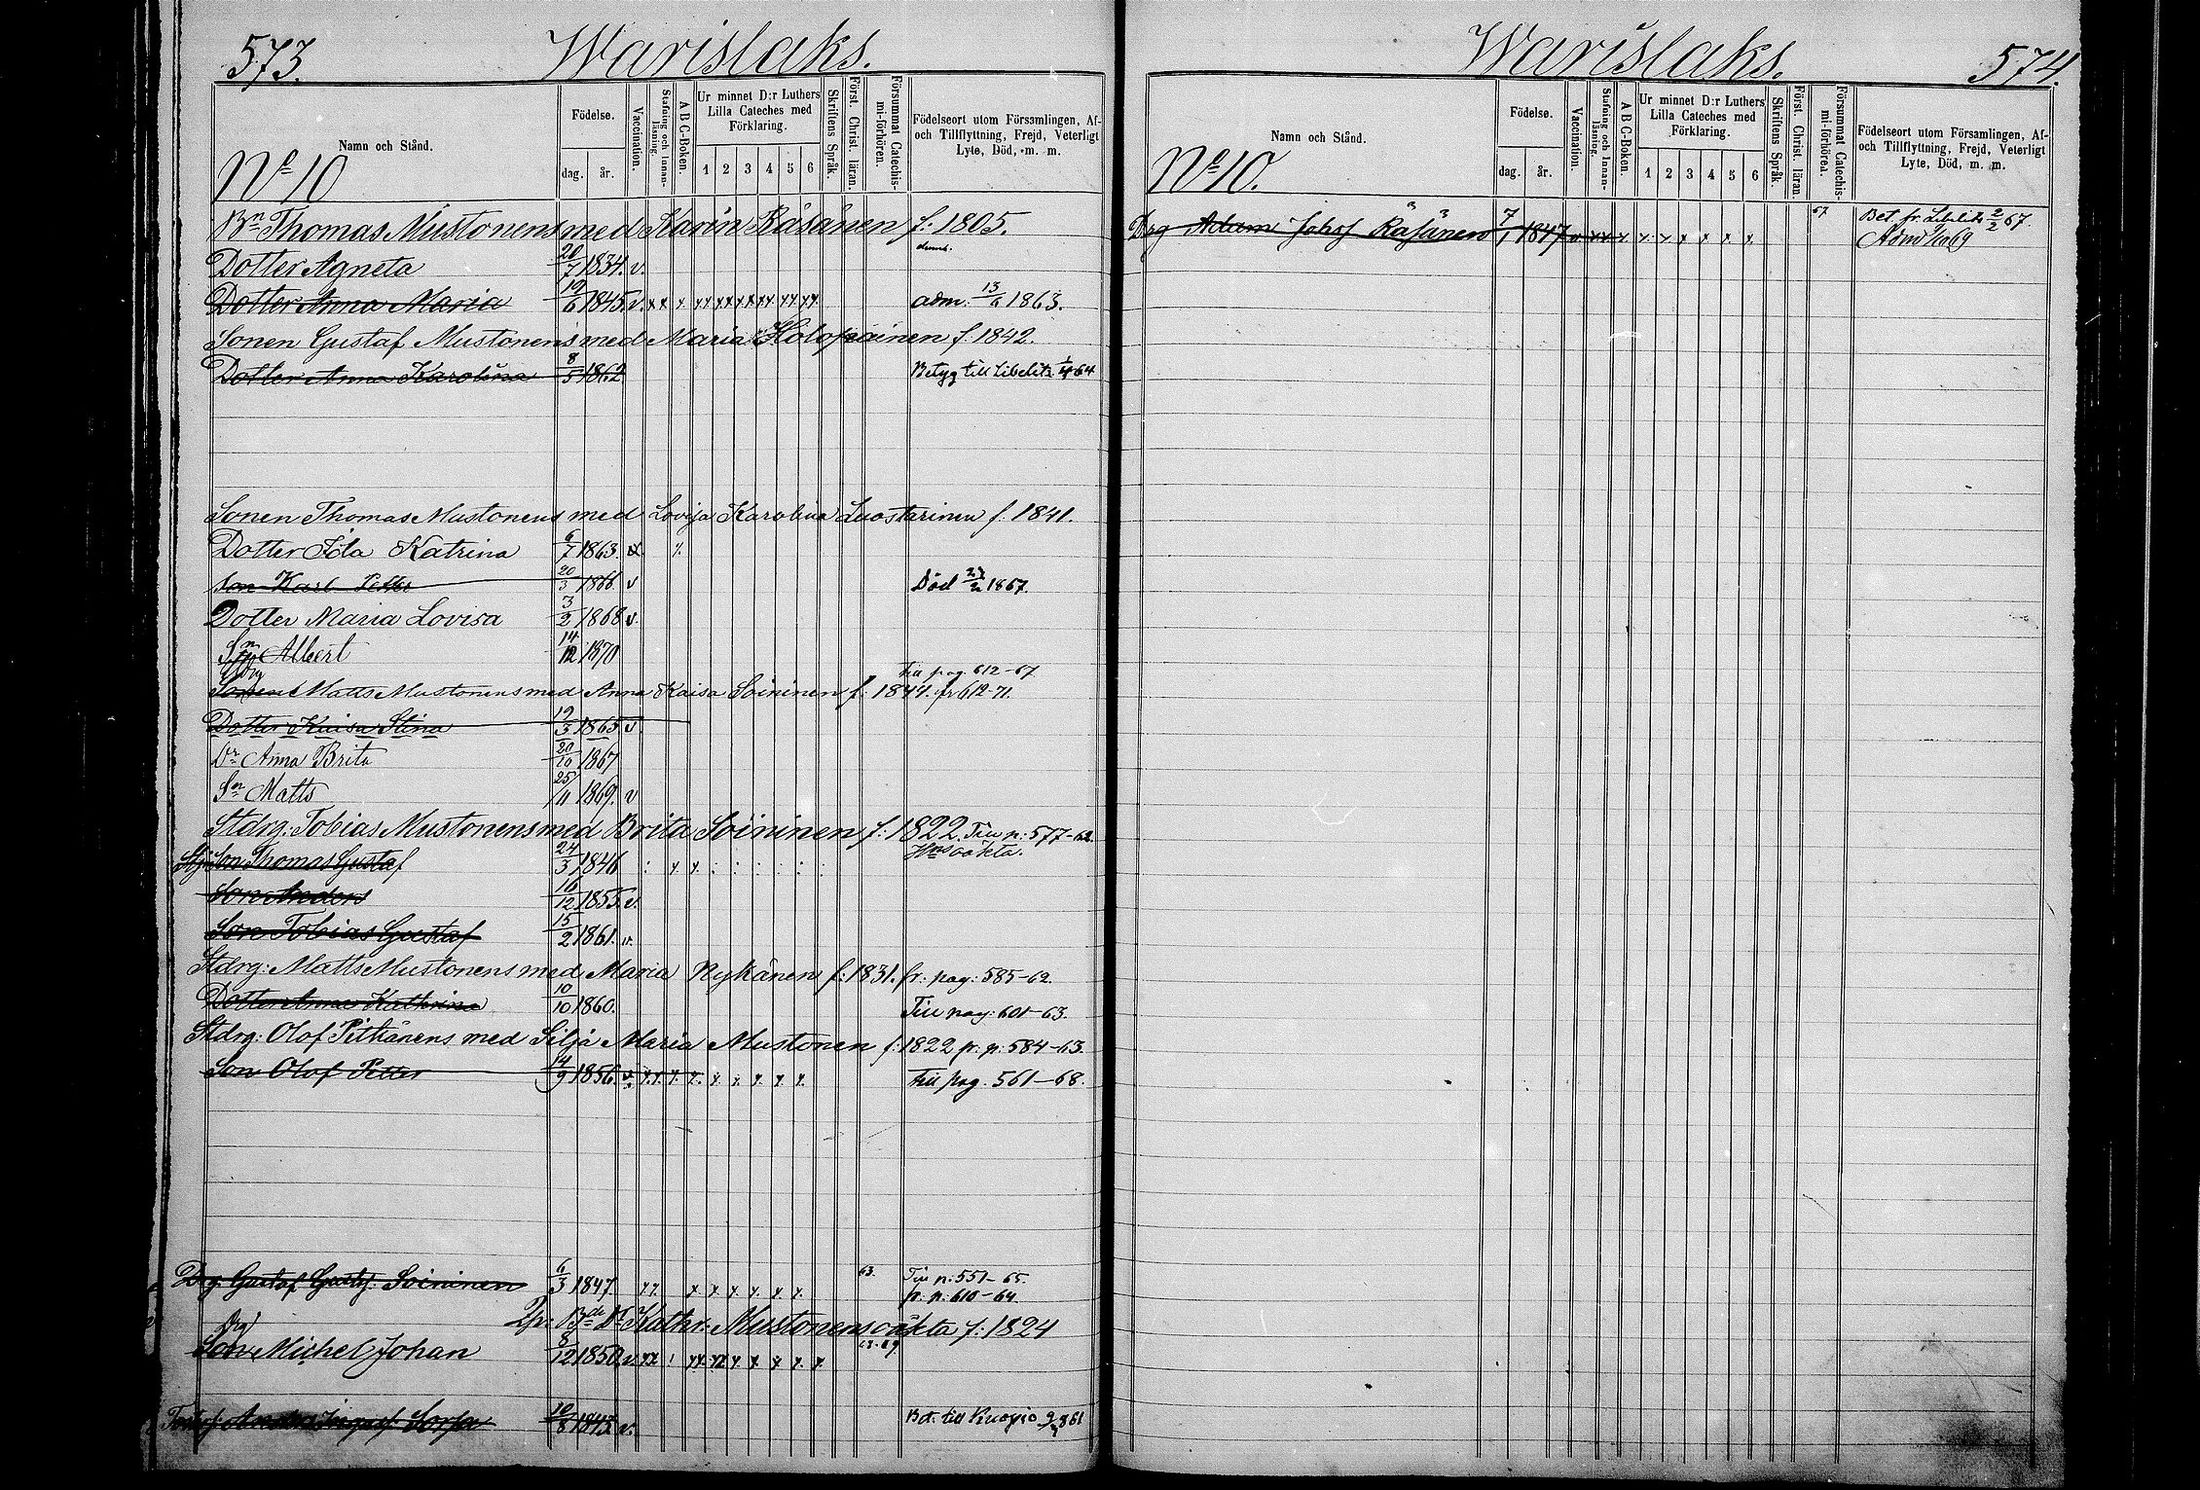 573. Warislaks.
Namn och Stånd.
Födelse.
dag. år.
Vaccination.
Stafning och Innan-läsning.
A B C-Boken.
Ur minnet D:r Luthers
Lilla Cateches med
Förklaring.
1 2 3 4 5 6
Skriftens Språk.
Först. Christ. läran.
Försummat Catechis-mi-förhören.
Födelseort utom Församlingen, Af-
och Tillflyttning, Frejd, Veterligt
Lyte, Död, m. m.
No 10
Bn Thomas Mustonens med Karin Räsänen f: 1805.
Dotter Agneta 20/7 1834. v.
Dotter Anna Maria 19/6 1845. v. x x x xx xx xx xx xx xx adm: 13/6 1863.
Sonen Gustaf Mustonens med Maria Holopainen f: 1842.
Dotter Anna Karolina 8/5 1862 Betyg till Libelitz 1/4 64
Sonen Thomas Mustonens med Lovisa Karolina Luostarinen f: 1841.
Dotter Ida Katrina 6/7 1863. x
Son Karl Petter 20/3 1866. v Död 27/2 1867.
Dotter Maria Lovisa 3/2 1868 v.
Sn Albert 14/12 1870
Till pag 612-67
Sonen Matts Mustonens med Anna Kaisa Soininen f: 1844. fr 612-71.
Dotter Kaisa Stina 19/3 1865 v.
Dr Anna Brita 20/10 1867
Sn Matts 25/11 1869. v
Stdrg: Tobias Mustonens med Brita Soininen f: 1822. Till p: 577-62.
Son Thomas Gustaf 24/3 1846
Son Anders 16/12 1855. v.
Son Tobias Gustaf 15/2 1861. v.
Stdrg: Matts Mustonens med Maria Nykänen f: 1831. fr. pag: 585-62.
Dotter Anna Kathrina 10/10 1860. Till pag: 601-63.
Stdrg: Olof Pitkänens med Silja Maria Mustonen f: 1822 fr. p: 584-63.
Son Olof Petter 14/9 1856. v. x x x x x x x x x Till pag. 561-68.
Drg Gustaf Gustf: Soininen 6/3 1847. x x x x x x x x 63. Till p: 551-65.
fr. p: 610-64
Bde Dr Kathr. Mustonens oäkta f: 1824
Drg
Son Michel Johan 8/12 1850. v.
10/8 1843. v. Bet. till Kuopio 861
Warislaks. 574.
Namn och Stånd.
Födelse.
dag. år.
Vaccination.
Stafning och Innan-läsning.
A B C-Boken.
Ur minnet D:r Luthers
Lilla Cateches med
Förklaring.
1 2 3 4 5 6
Skriftens Språk.
Först. Christ. läran
Försummat Catechis-mi-förhören.
Födelseort utom Församlingen, Af-
och Tillflyttning, Frejd, Veterligt
Lyte, Död, m. m.
No 10.
Drg Adam Johsf Räsänen 7/1 1847 v x x x x x x x x x 67 Bet fr. Libelitz 2/2 67.